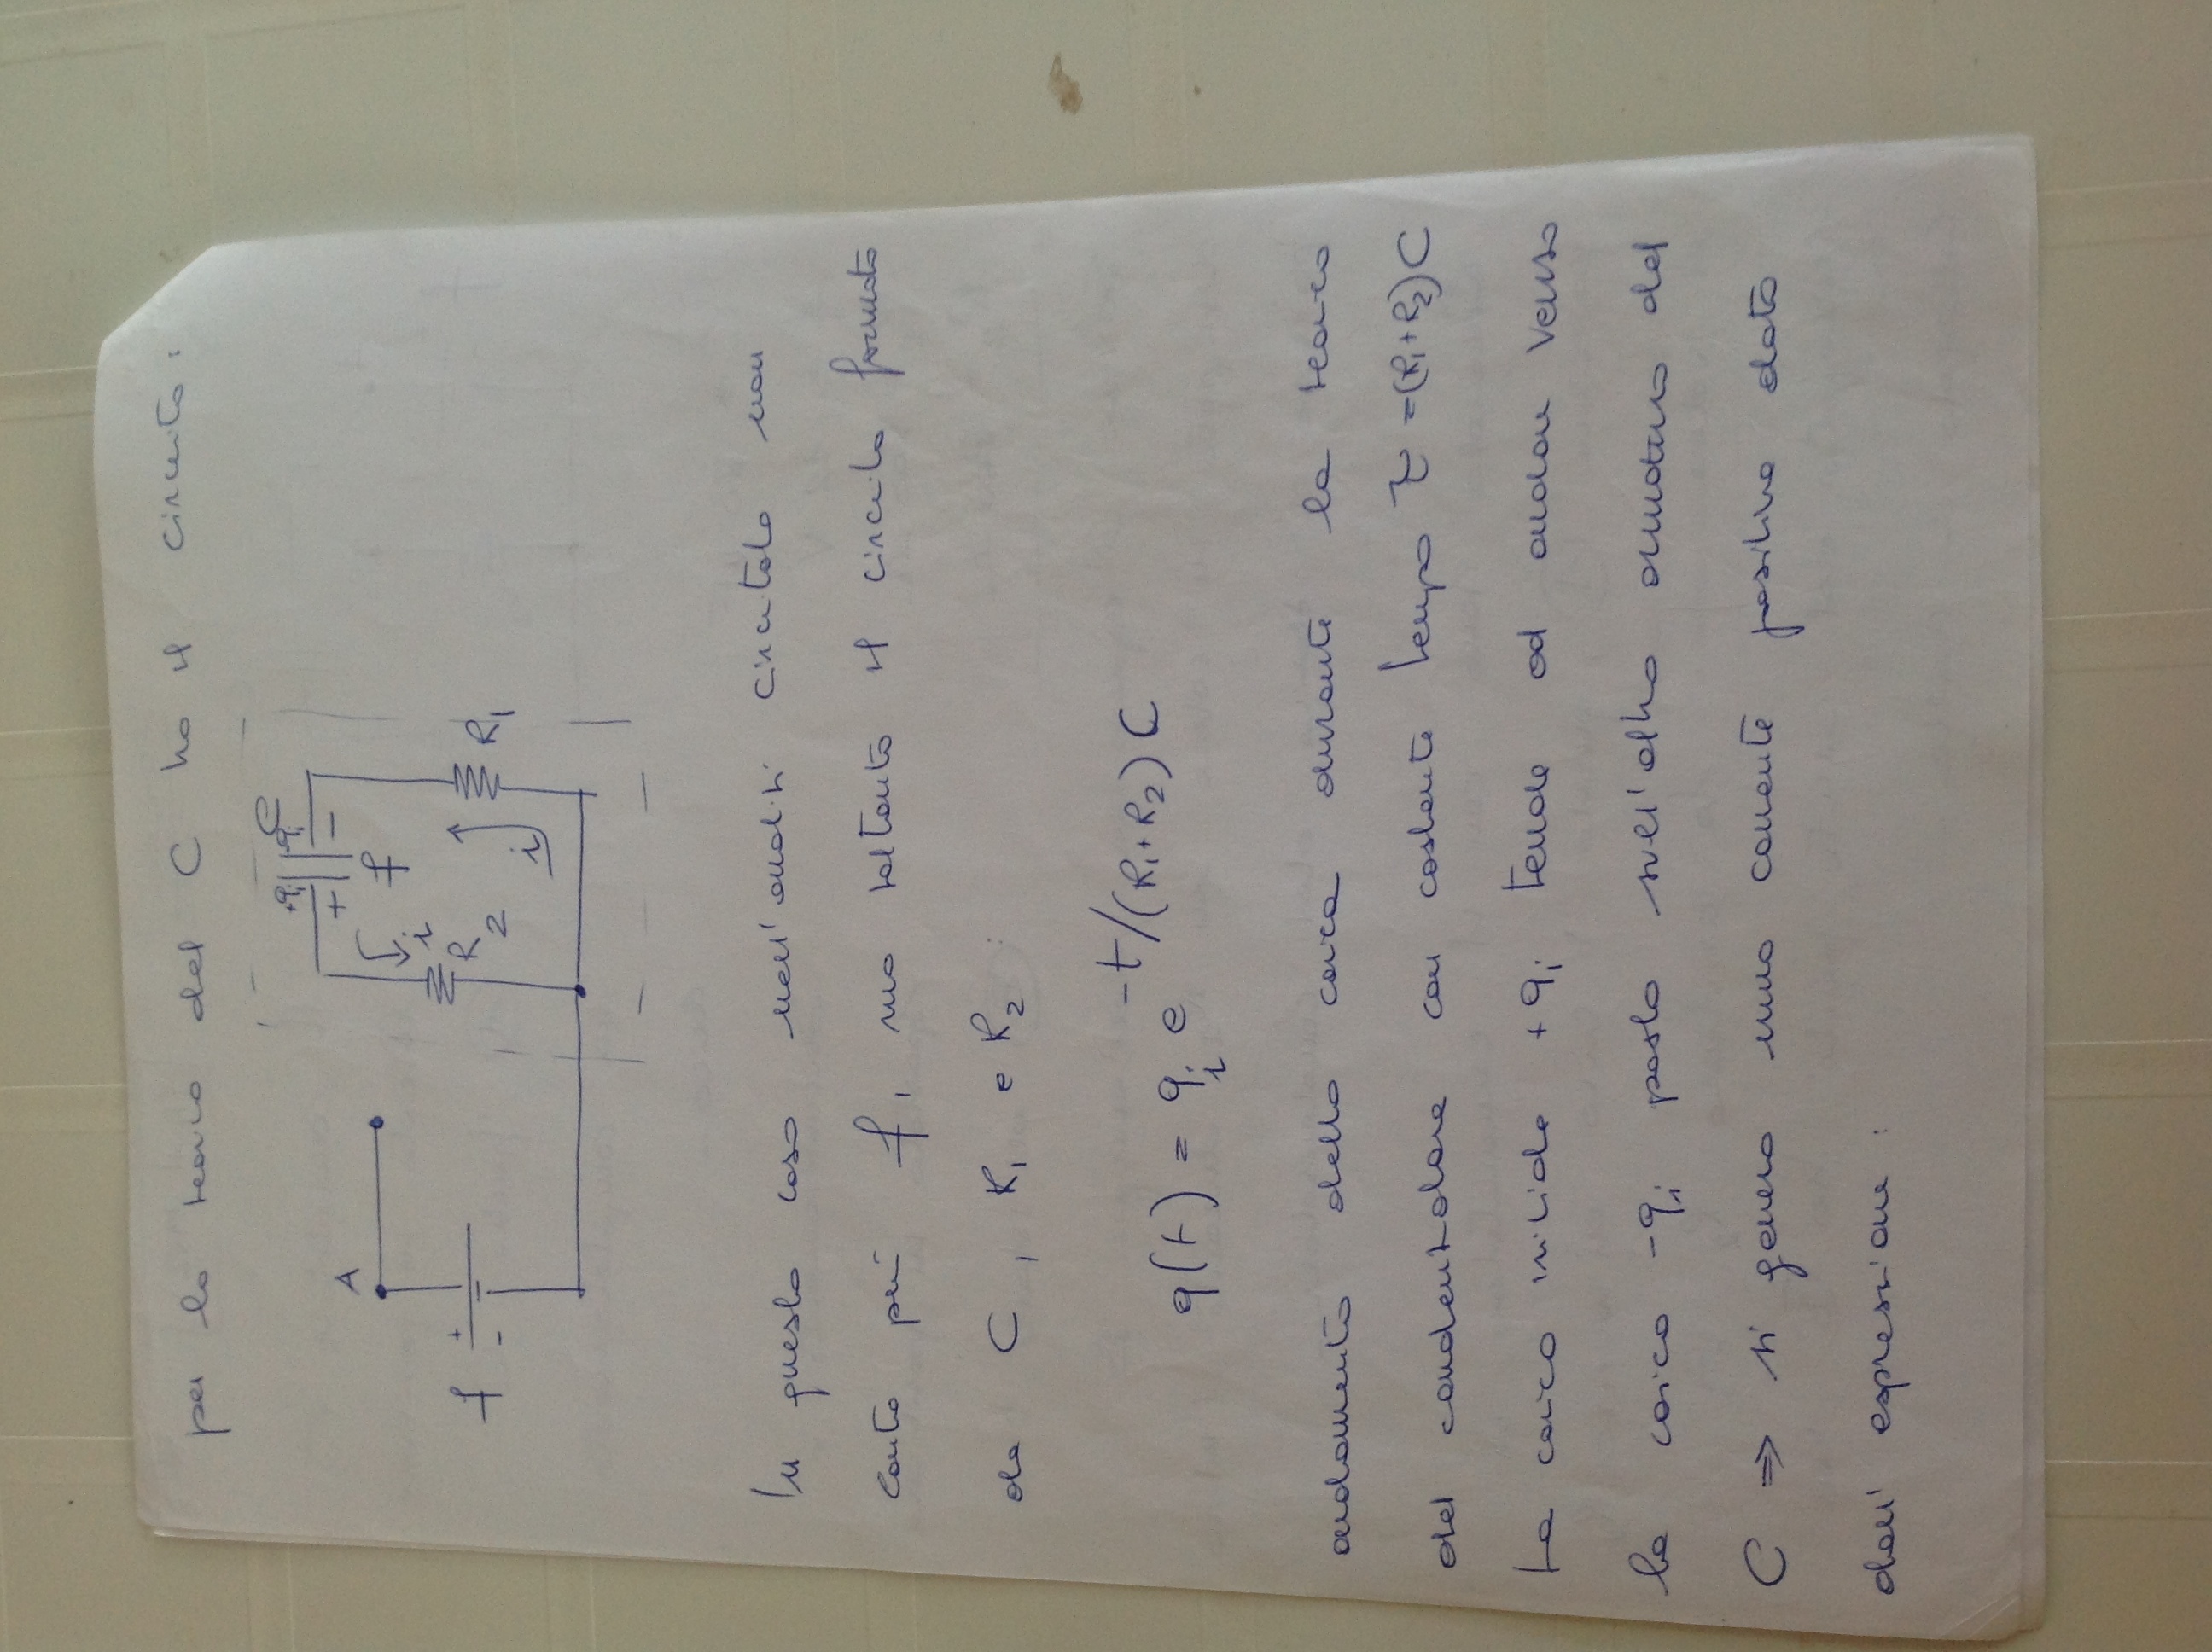 per la scarica del C ho il circuito:
+qi -qi C
+ -
A
f
i
f + -
R2
i
R1
In questo caso nell'analisi circuitale non
conta più f, ma soltanto il circuito formato
da C, R1 e R2:
q(t) = qi e^-t/(R1+R2)C
andamento della carica durante la scarica
del condensatore con costante tempo τ =(R1+R2)C
La carica iniziale +qi tende ad andare verso
la carica -qi posta sull'altra armatura del
C ⇒ si genera una corrente positiva data
dall'espressione: